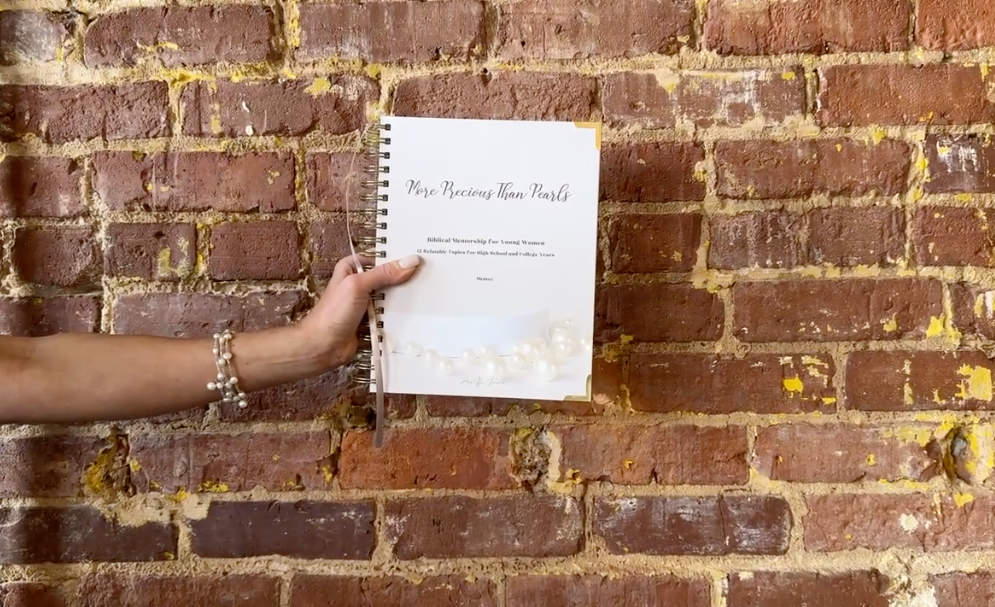 More Precious Than Pearls
Biblical Mentorship For Young Women
12 Relatable Topics For High School and College Years